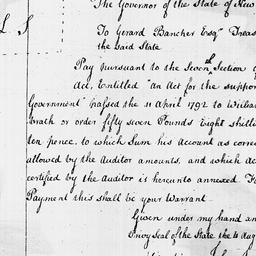 The Governor of the State of New
L S
To Gerard Bancker Esqr Treas
the said State
Pay pursuant to the Seventh Section of
Act, Entitled "an Act for the support
Government" passed the 11 April 1792 to William
or order fifty seven Pounds Eight shill
ten pence, to which Sum his Account as correc
allowed by the Auditor amounts, and which Ac
certified by the Auditor is hereunto annexed. F
Payment this shall be your Warrant
Given under my hand an
Privy Seal of the State the 16 Aug